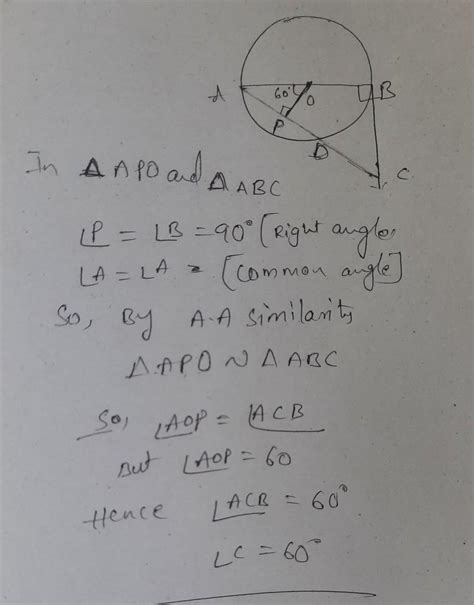 A 60° O B
P
D
C.
In △ APO and △ ABC
∠P = ∠B = 90° [Right angle,
∠A = ∠A = [Common angle]
So, By A-A Similarity
△APO ~ △ABC
So, ∠AOP = ∠ACB
But ∠AOP = 60
Hence ∠ACB = 60°
∠C = 60°